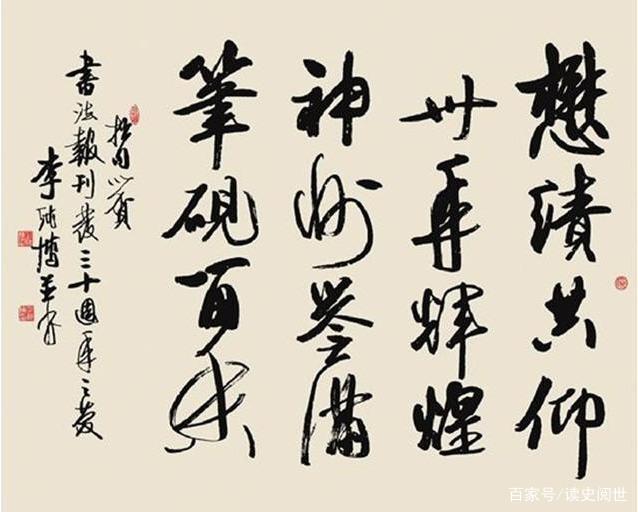 懋績共仰
卅年輝煌
神州譽滿
筆硯百
拙句以賀
書法報刊發三十週年之慶
李博並書
百家号/读史阅世